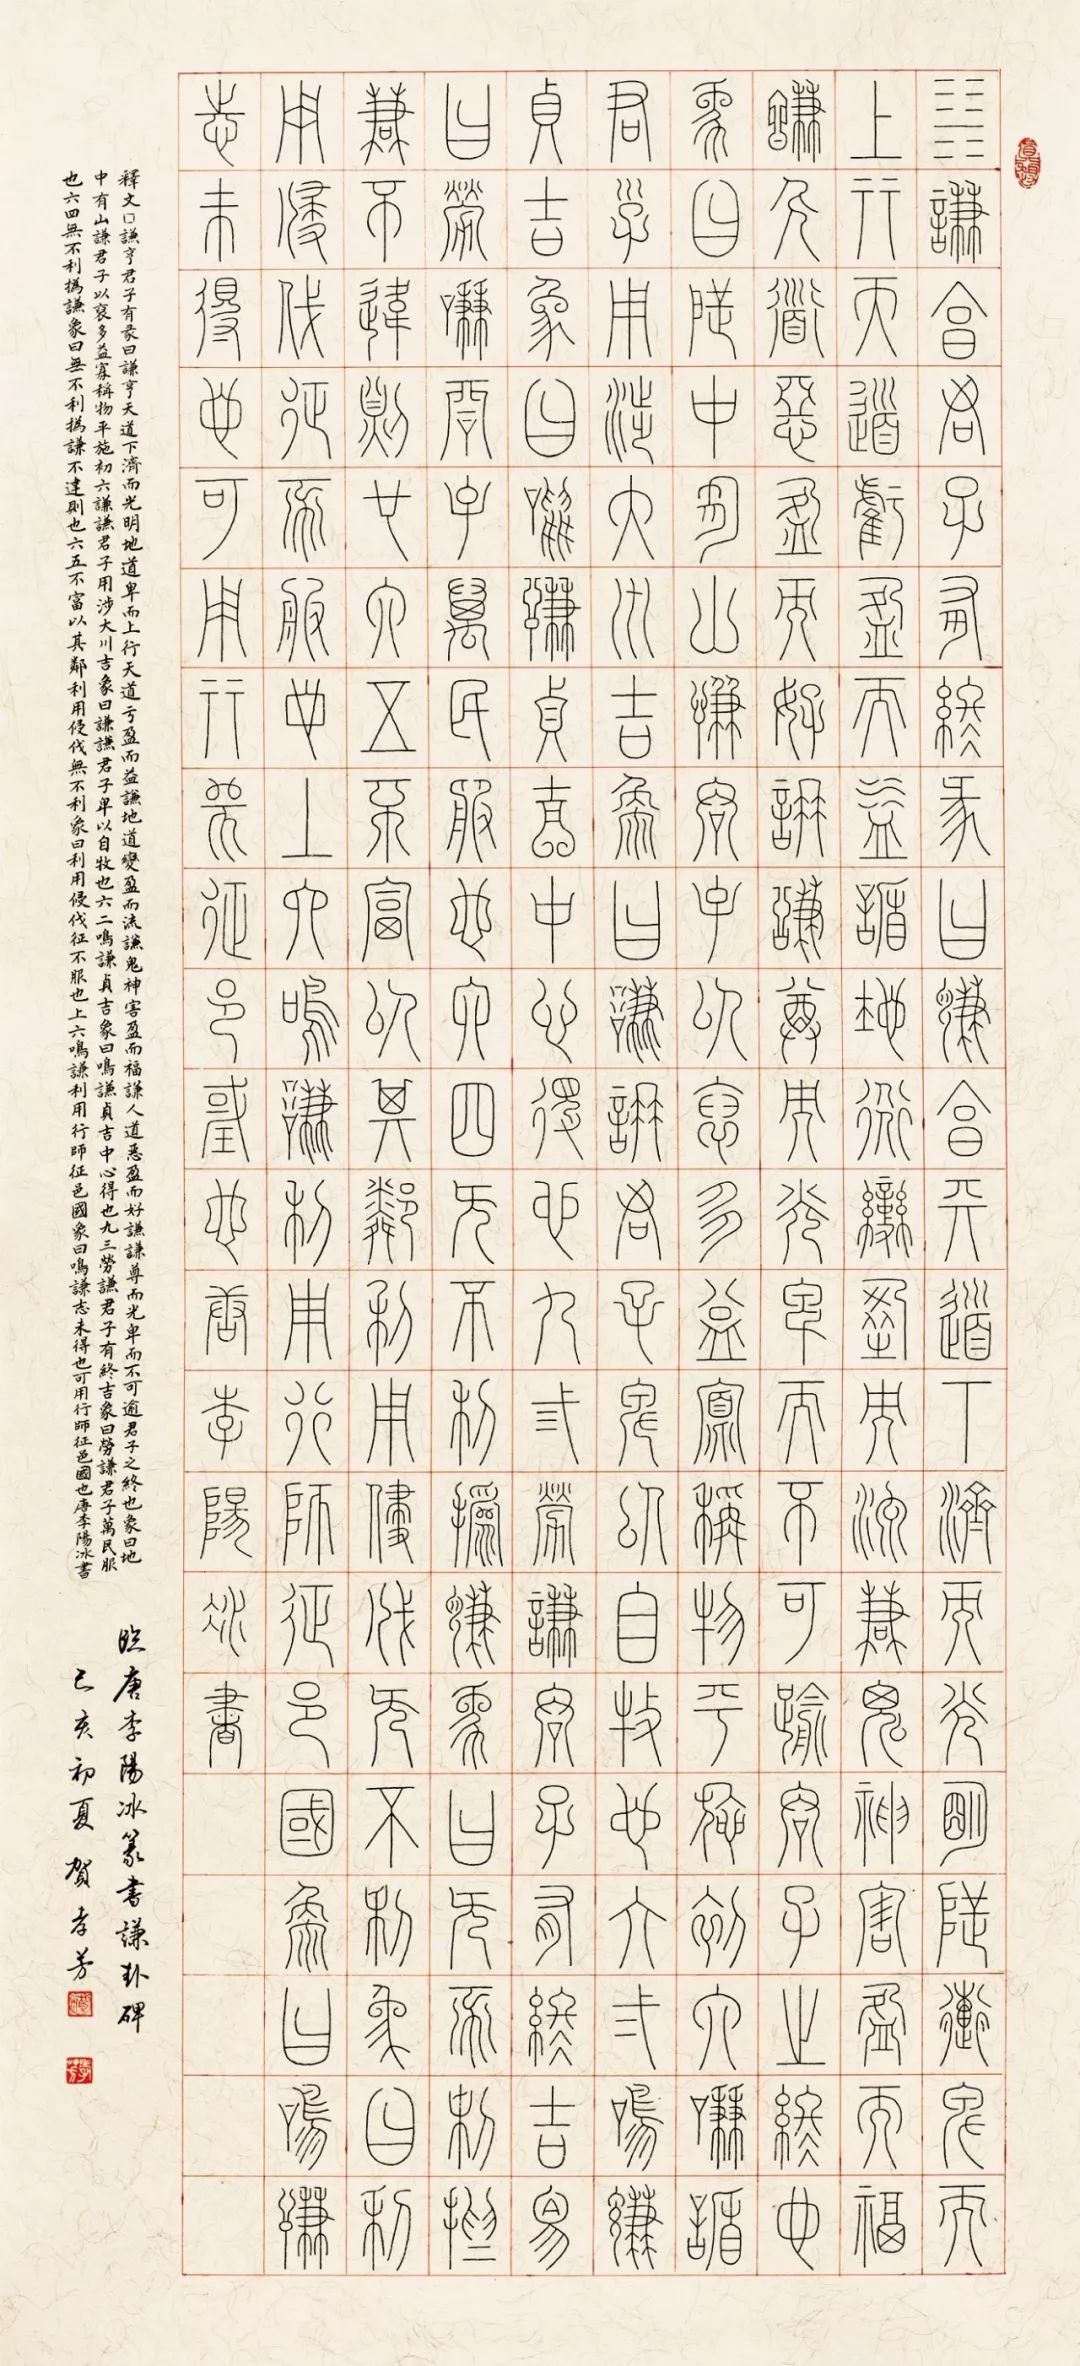 ䷎謙亨君子有終彖曰謙亨天道下濟而光明地道卑而
上行天道虧盈而益謙地道變盈而流謙鬼神害盈而福
謙人道惡盈而好謙謙尊而光卑而不可踰君子之終也
象曰地中有山謙君子以裒多益寡稱物平施初六謙謙
君子用涉大川吉象曰謙謙君子卑以自牧也六二鳴謙
貞吉象曰鳴謙貞吉中心得也九三勞謙君子有終吉象
曰勞謙君子萬民服也六四无不利撝謙象曰无不利撝
謙不違則也六五不富以其鄰利用侵伐无不利象曰利
用侵伐征不服也上六鳴謙利用行師征邑國象曰鳴謙
志未得也可用行師征邑國也唐李陽冰書
釋文口謙亨君子有彖曰謙亨天道下濟而光明地道卑而上行天道亏盈而益謙地道變盈而流謙鬼神害盈而福謙人道惡盈而好謙謙尊而光卑而不可逾君子之終也象曰地
中有山謙君子以裒多益寡稱物平施初六謙謙君子用涉大川吉象曰謙謙君子卑以自牧也六二鳴謙貞吉象曰鳴謙貞吉中心得也九三勞謙君子有終吉象曰勞謙君子萬民服
也六四無不利撝謙象曰無不利撝謙不違則也六五不富以其鄰利用侵伐無不利象曰利用侵伐征不服也上六鳴謙利用行師征邑國象曰鳴謙志未得也可用行師征邑國也唐李陽冰書
臨唐李陽冰篆書謙卦碑
己亥初夏賀孝芳